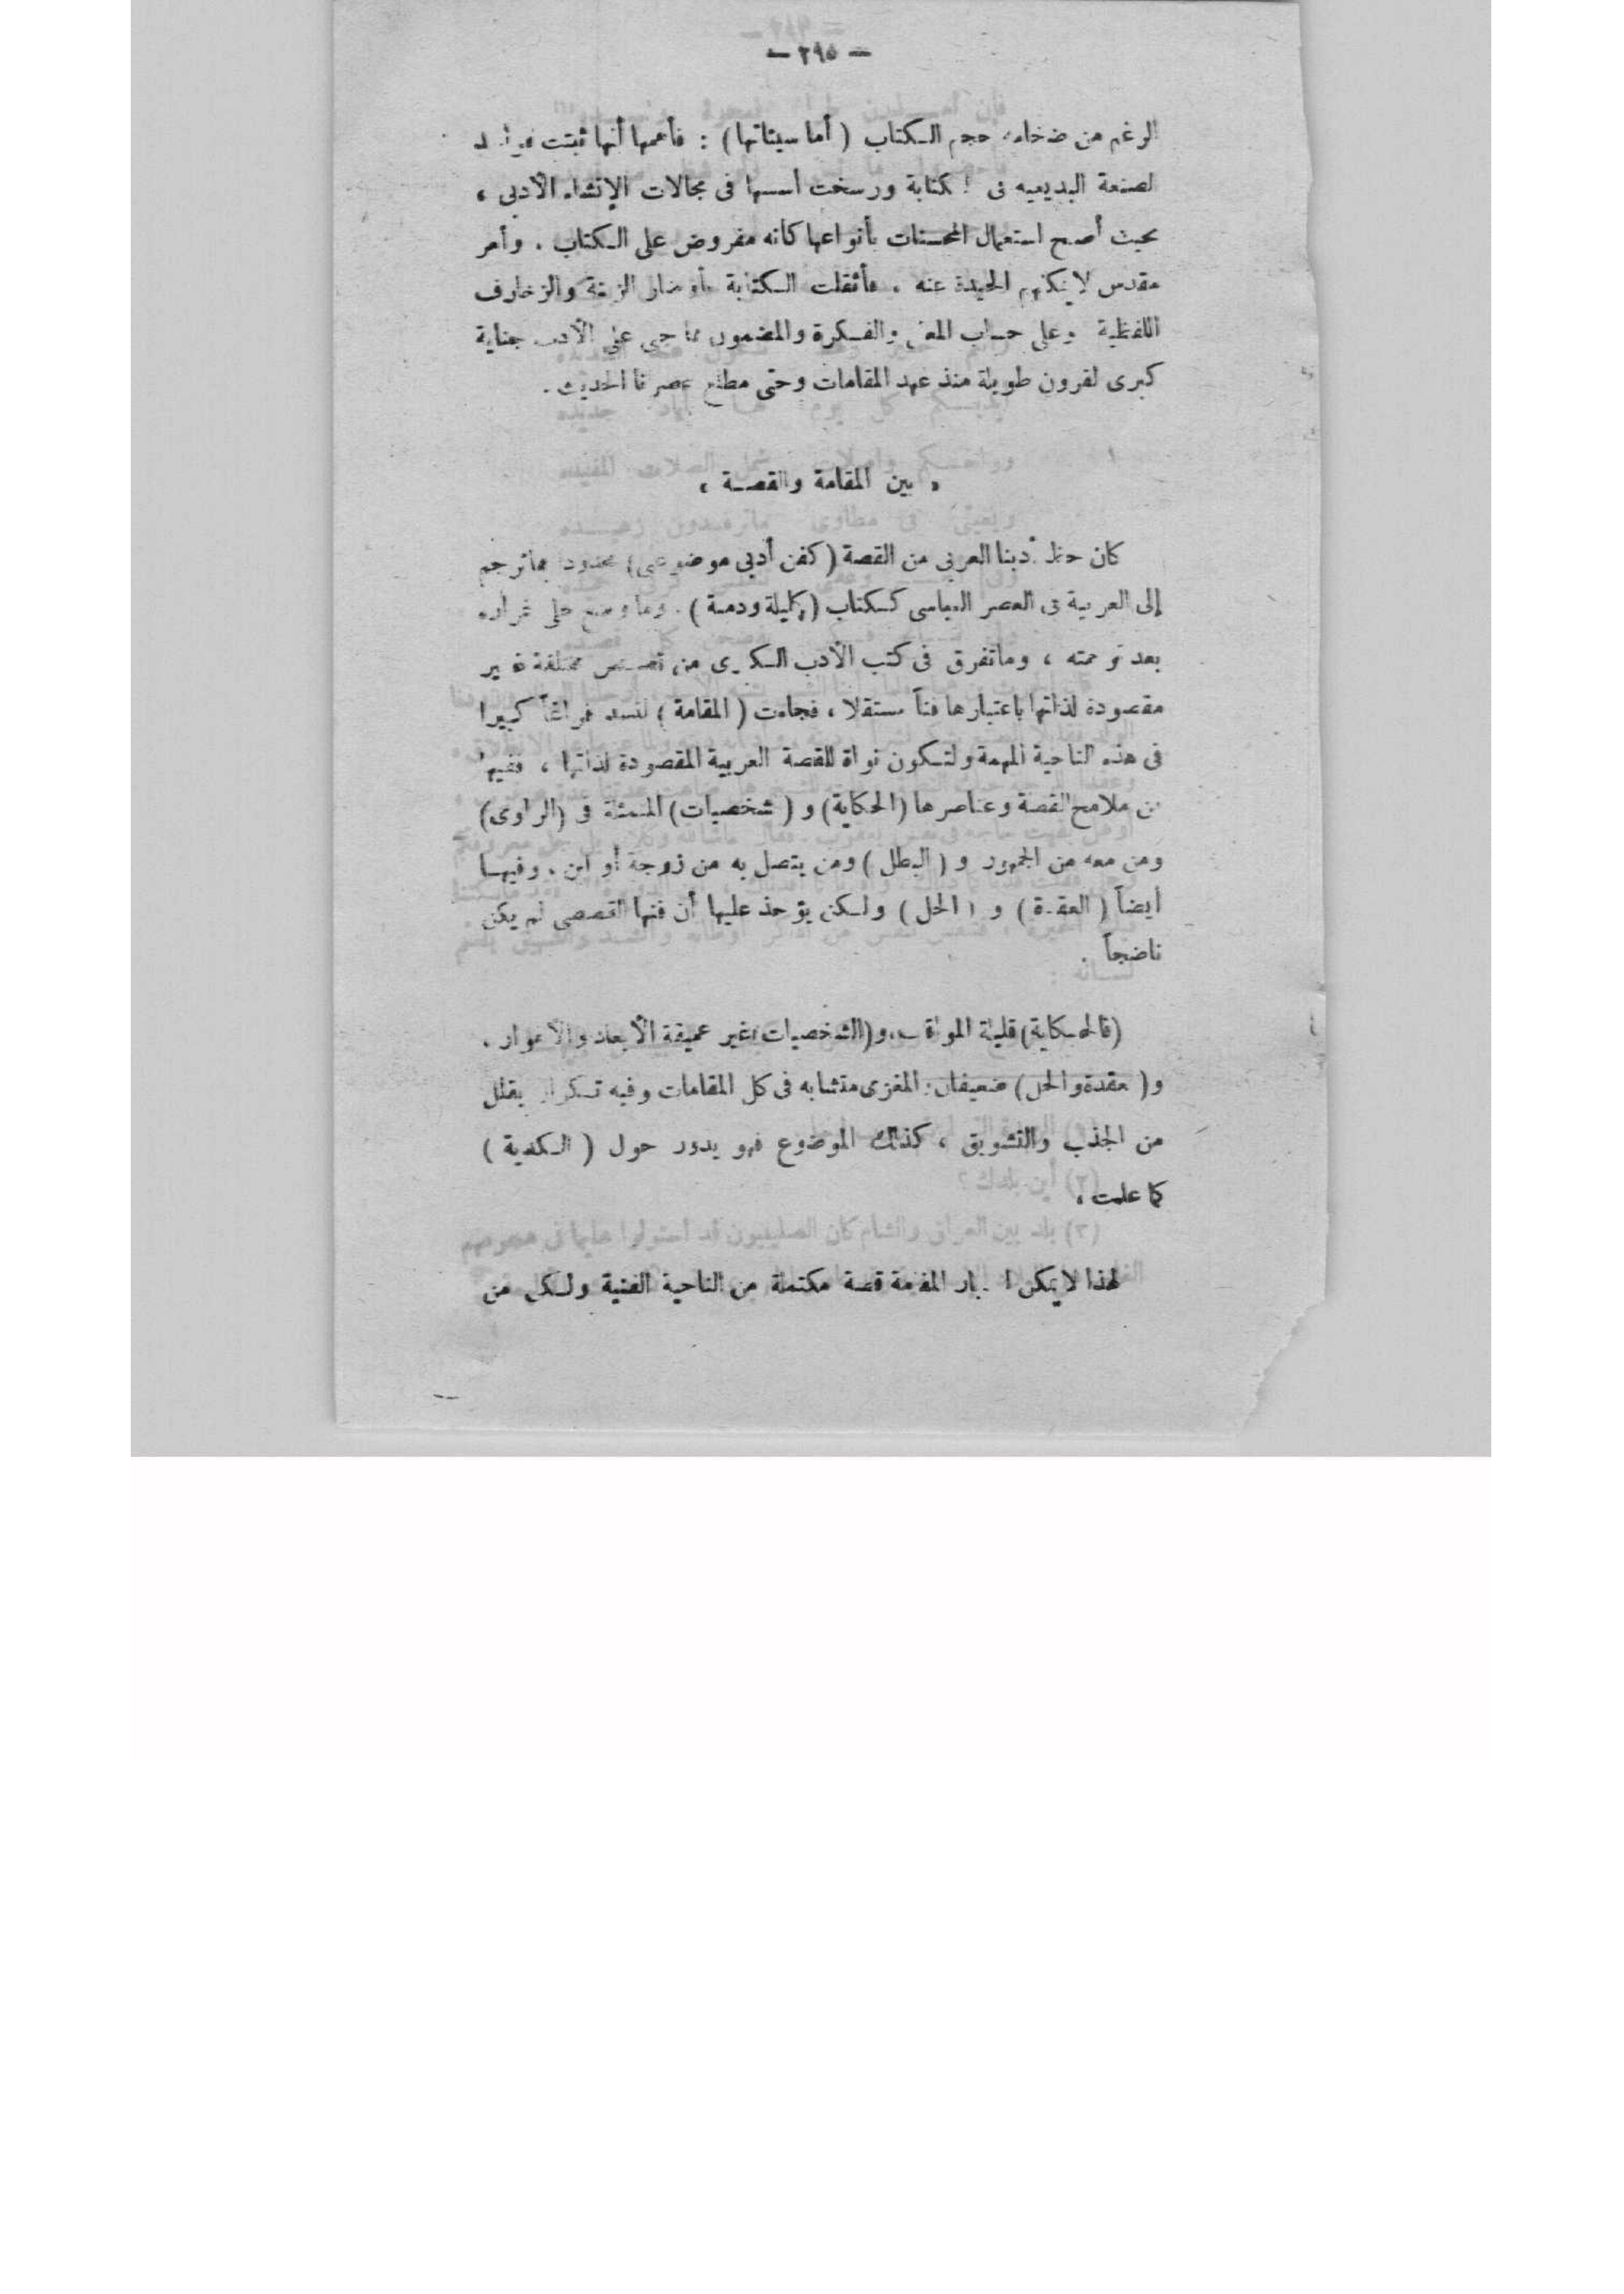 — ٢٩٥ —
الرغم من ضخامة حجم الكتاب ( أما سيئاتها ) : فأهمها أنها ثبتت
لصنعة البديعيه فى كتابة ورسخت أسسها فى مجالات الإنشاء الأدبى ،
بحيث أصبح استعمال المحسنات بأنواعها كأنه مفروض على الكتاب . وأمر
مقدس لا يمكنهم الحيدة عنه . فأثقلت الكتابة الزينة والزخارف
اللفظية وعلى حساب المعنى والفكرة والمضمون مما جنى على الأدب جناية
كبرى لقرون طويلة منذ عهد المقامات وحتى مطلع عصرنا الحديث .
« بين المقامة والقصة »
كان حظ أدبنا العربى من القصة ( كفن أدبى موضوعى ) محدودا بما ترجم
إلى العربية فى العصر العباسى ككتاب ( كليلة ودمنة ) . وما وضع على غراره
بعد ترجمته ، وما تفرق فى كتب الأدب الكبرى من قصص مختلفة غير
مقصودة لذاتها باعتبارها فناً مستقلا ، فجاءت ( المقامة ) لتسد فراغاً كبيرا
فى هذه الناحية المهمة ولتكون نواة للقصة العربية المقصودة لذاتها ، ففيها
من ملامح القصة وعناصرها ( الحكاية ) و ( شخصيات ) الممثلة فى ( الراوى )
ومن معه من الجمهور و ( البطل ) ومن يتصل به من زوجة أو ابن . وفيها
أيضاً ( العقدة ) و ( الحل ) ولكن يؤخذ عليها أن فنها القصصى لم يكن
ناضجاً .
( فالحكاية ) قليلة المواقف ، و ( الشخصيات ) غير عميقة الأبعاد والأغوار .
و ( عقدة والحل ) ضعيفان : المغزى متشابه فى كل المقامات وفيه تكرار يقلل
من الجذب والتشويق ، كذلك الموضوع فهو يدور حول ( الكدية )
كما علمت .
لهذا لا يمكن المقامة قصة مكتملة من الناحية الفنية ولكن من